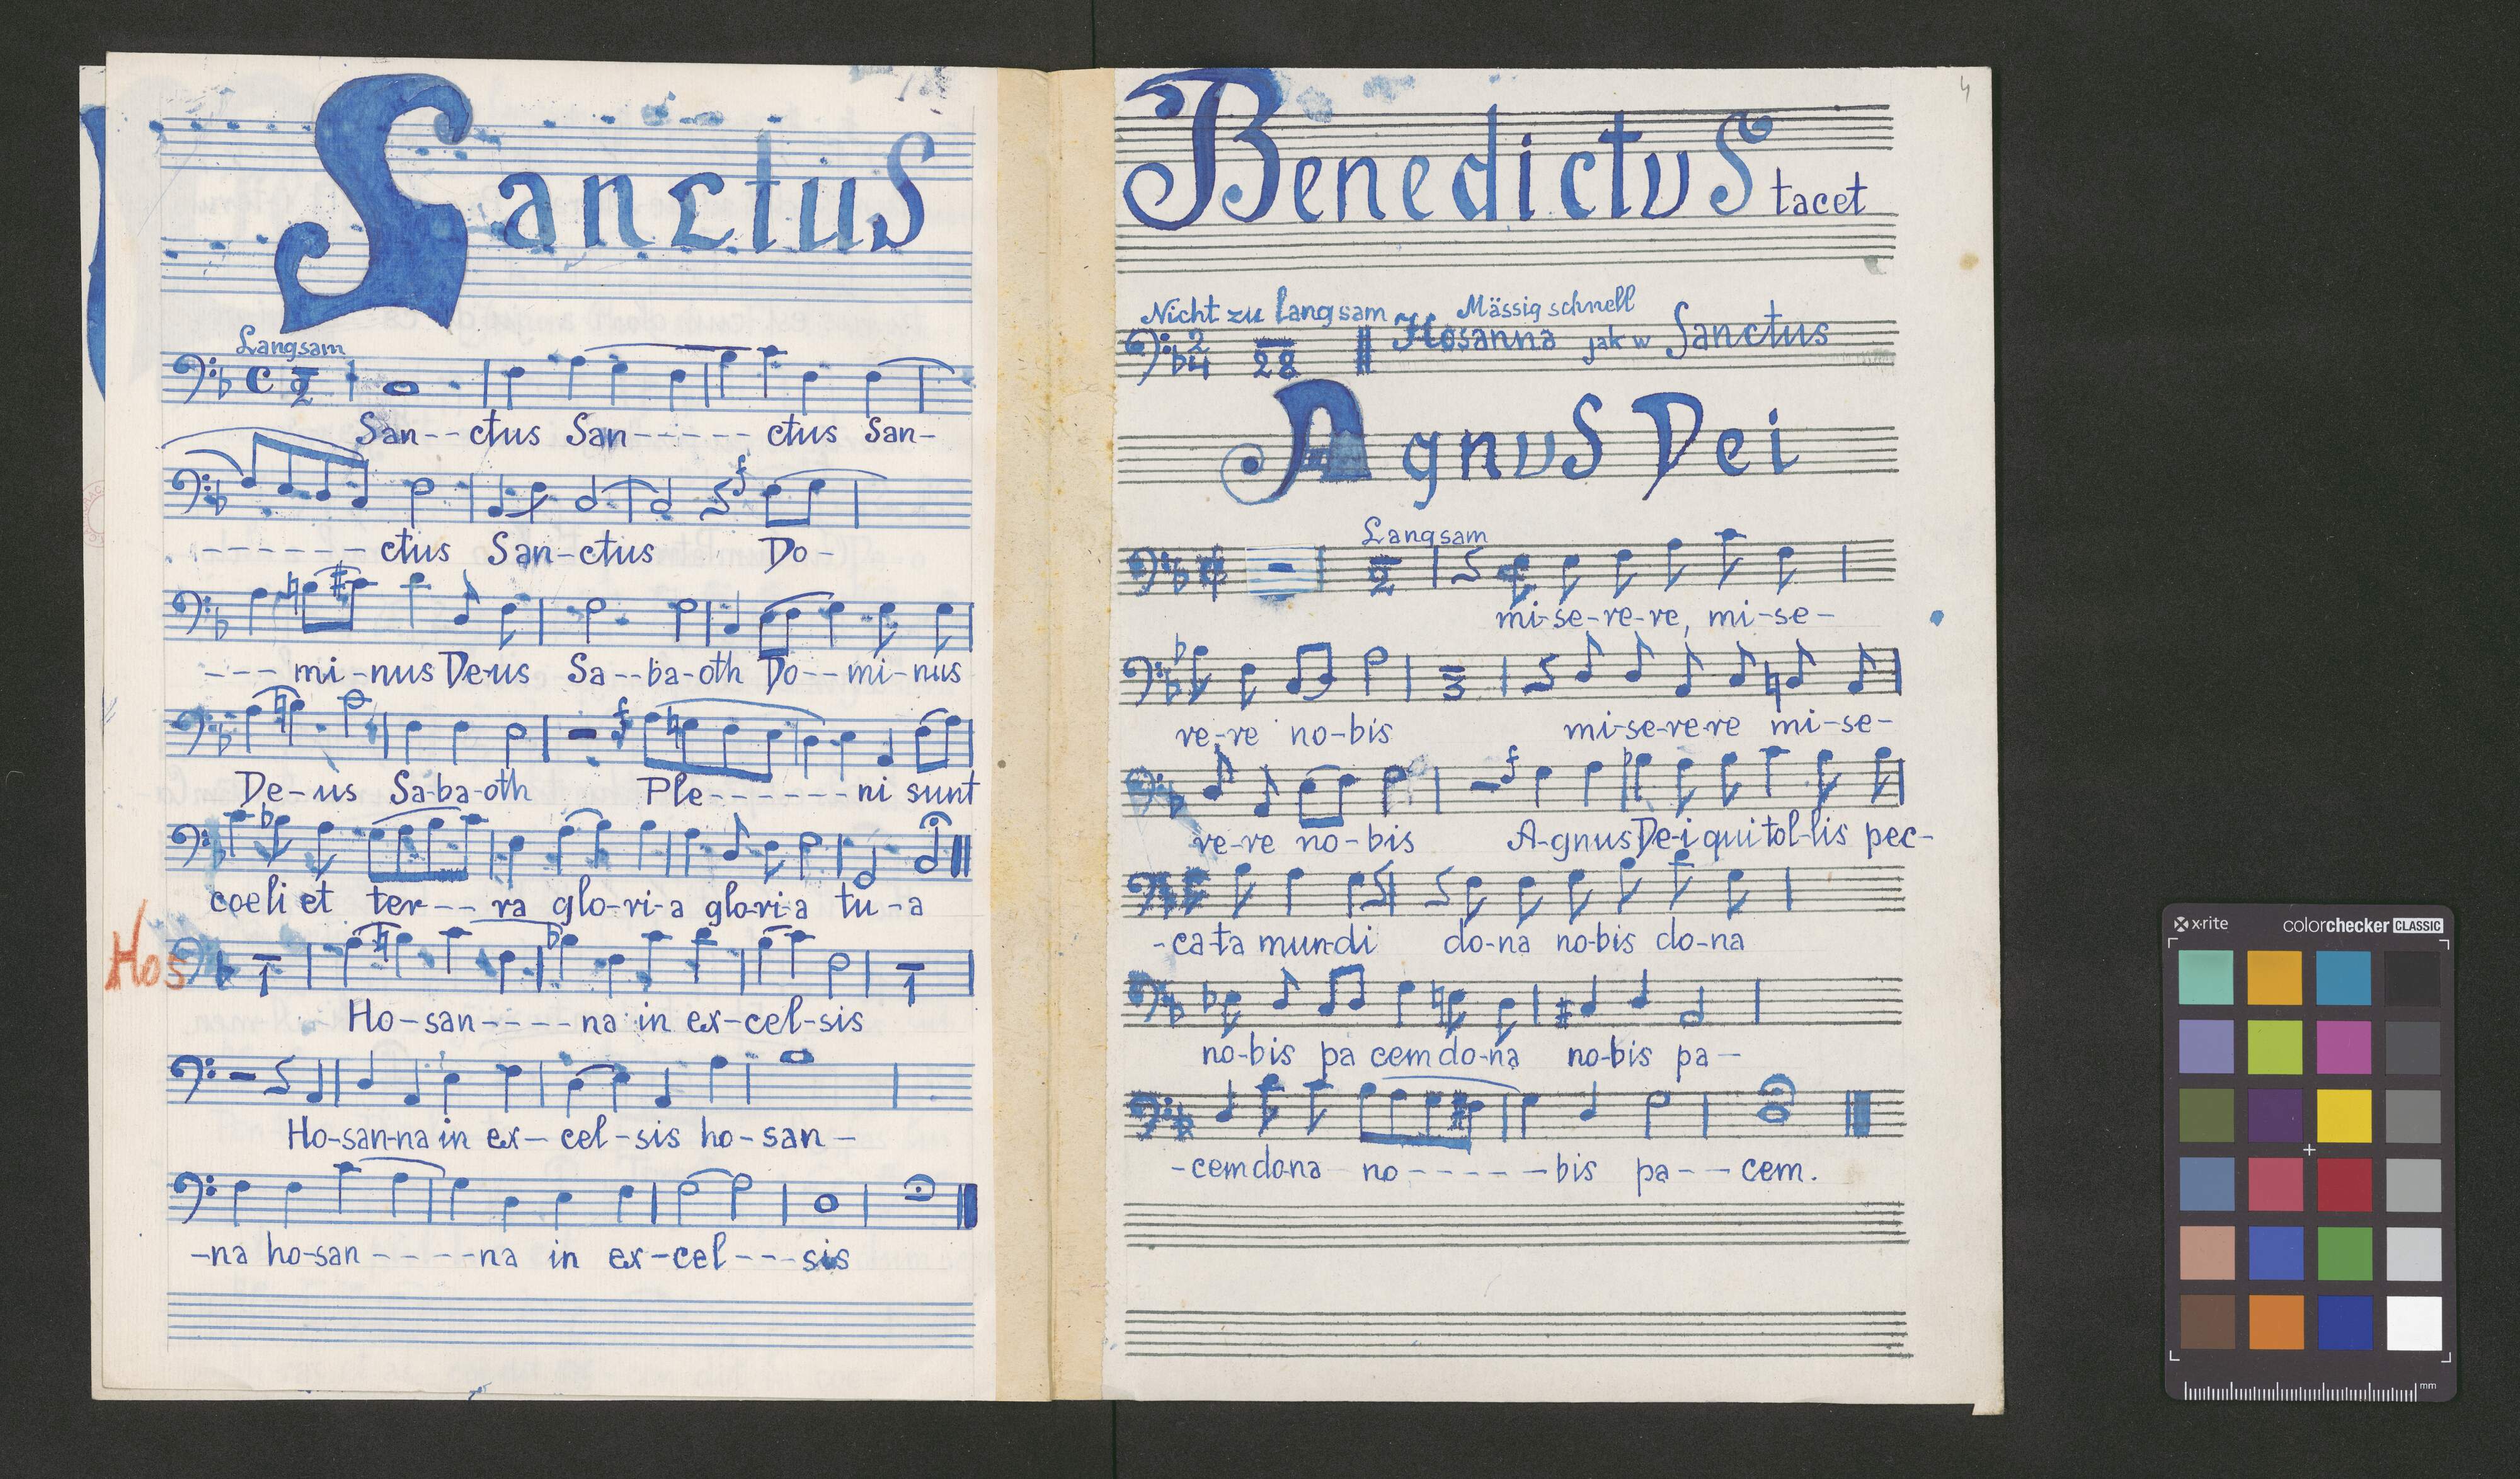 Sanctus
Langsam
San--ctus San----- ctus San-
------- ctus San-ctus Do-
--- mi-nus De-us Sa--ba-oth Do--mi-nus
De-us Sa-ba-oth Ple-------ni sunt
coeli et ter--- ra glo-ri-a glo-ri-a tu-a
Hos
Ho-san----na in ex-cel-sis
Ho-san-na in ex-cel-sis ho-san-
-na ho-san -----na in ex-cel---sis
4
Benedictus tacet
Nicht zu langsam Mässig schnell
2 4 28 Hosanna jak w Sanctus
Agnus Dei
Langsam
2
mi-se-re-re, mi-se-
3
re-re no-bis mi-se-re-re mi-se-
f
re-re no-bis A-gnus De-i qui tol-lis pec-
-ca-ta mun-di do-na no-bis do-na
no-bis pa cem do-na no-bis pa-
-cem do-na no------bis pa--cem.
x·rite colorchecker CLASSIC
mm